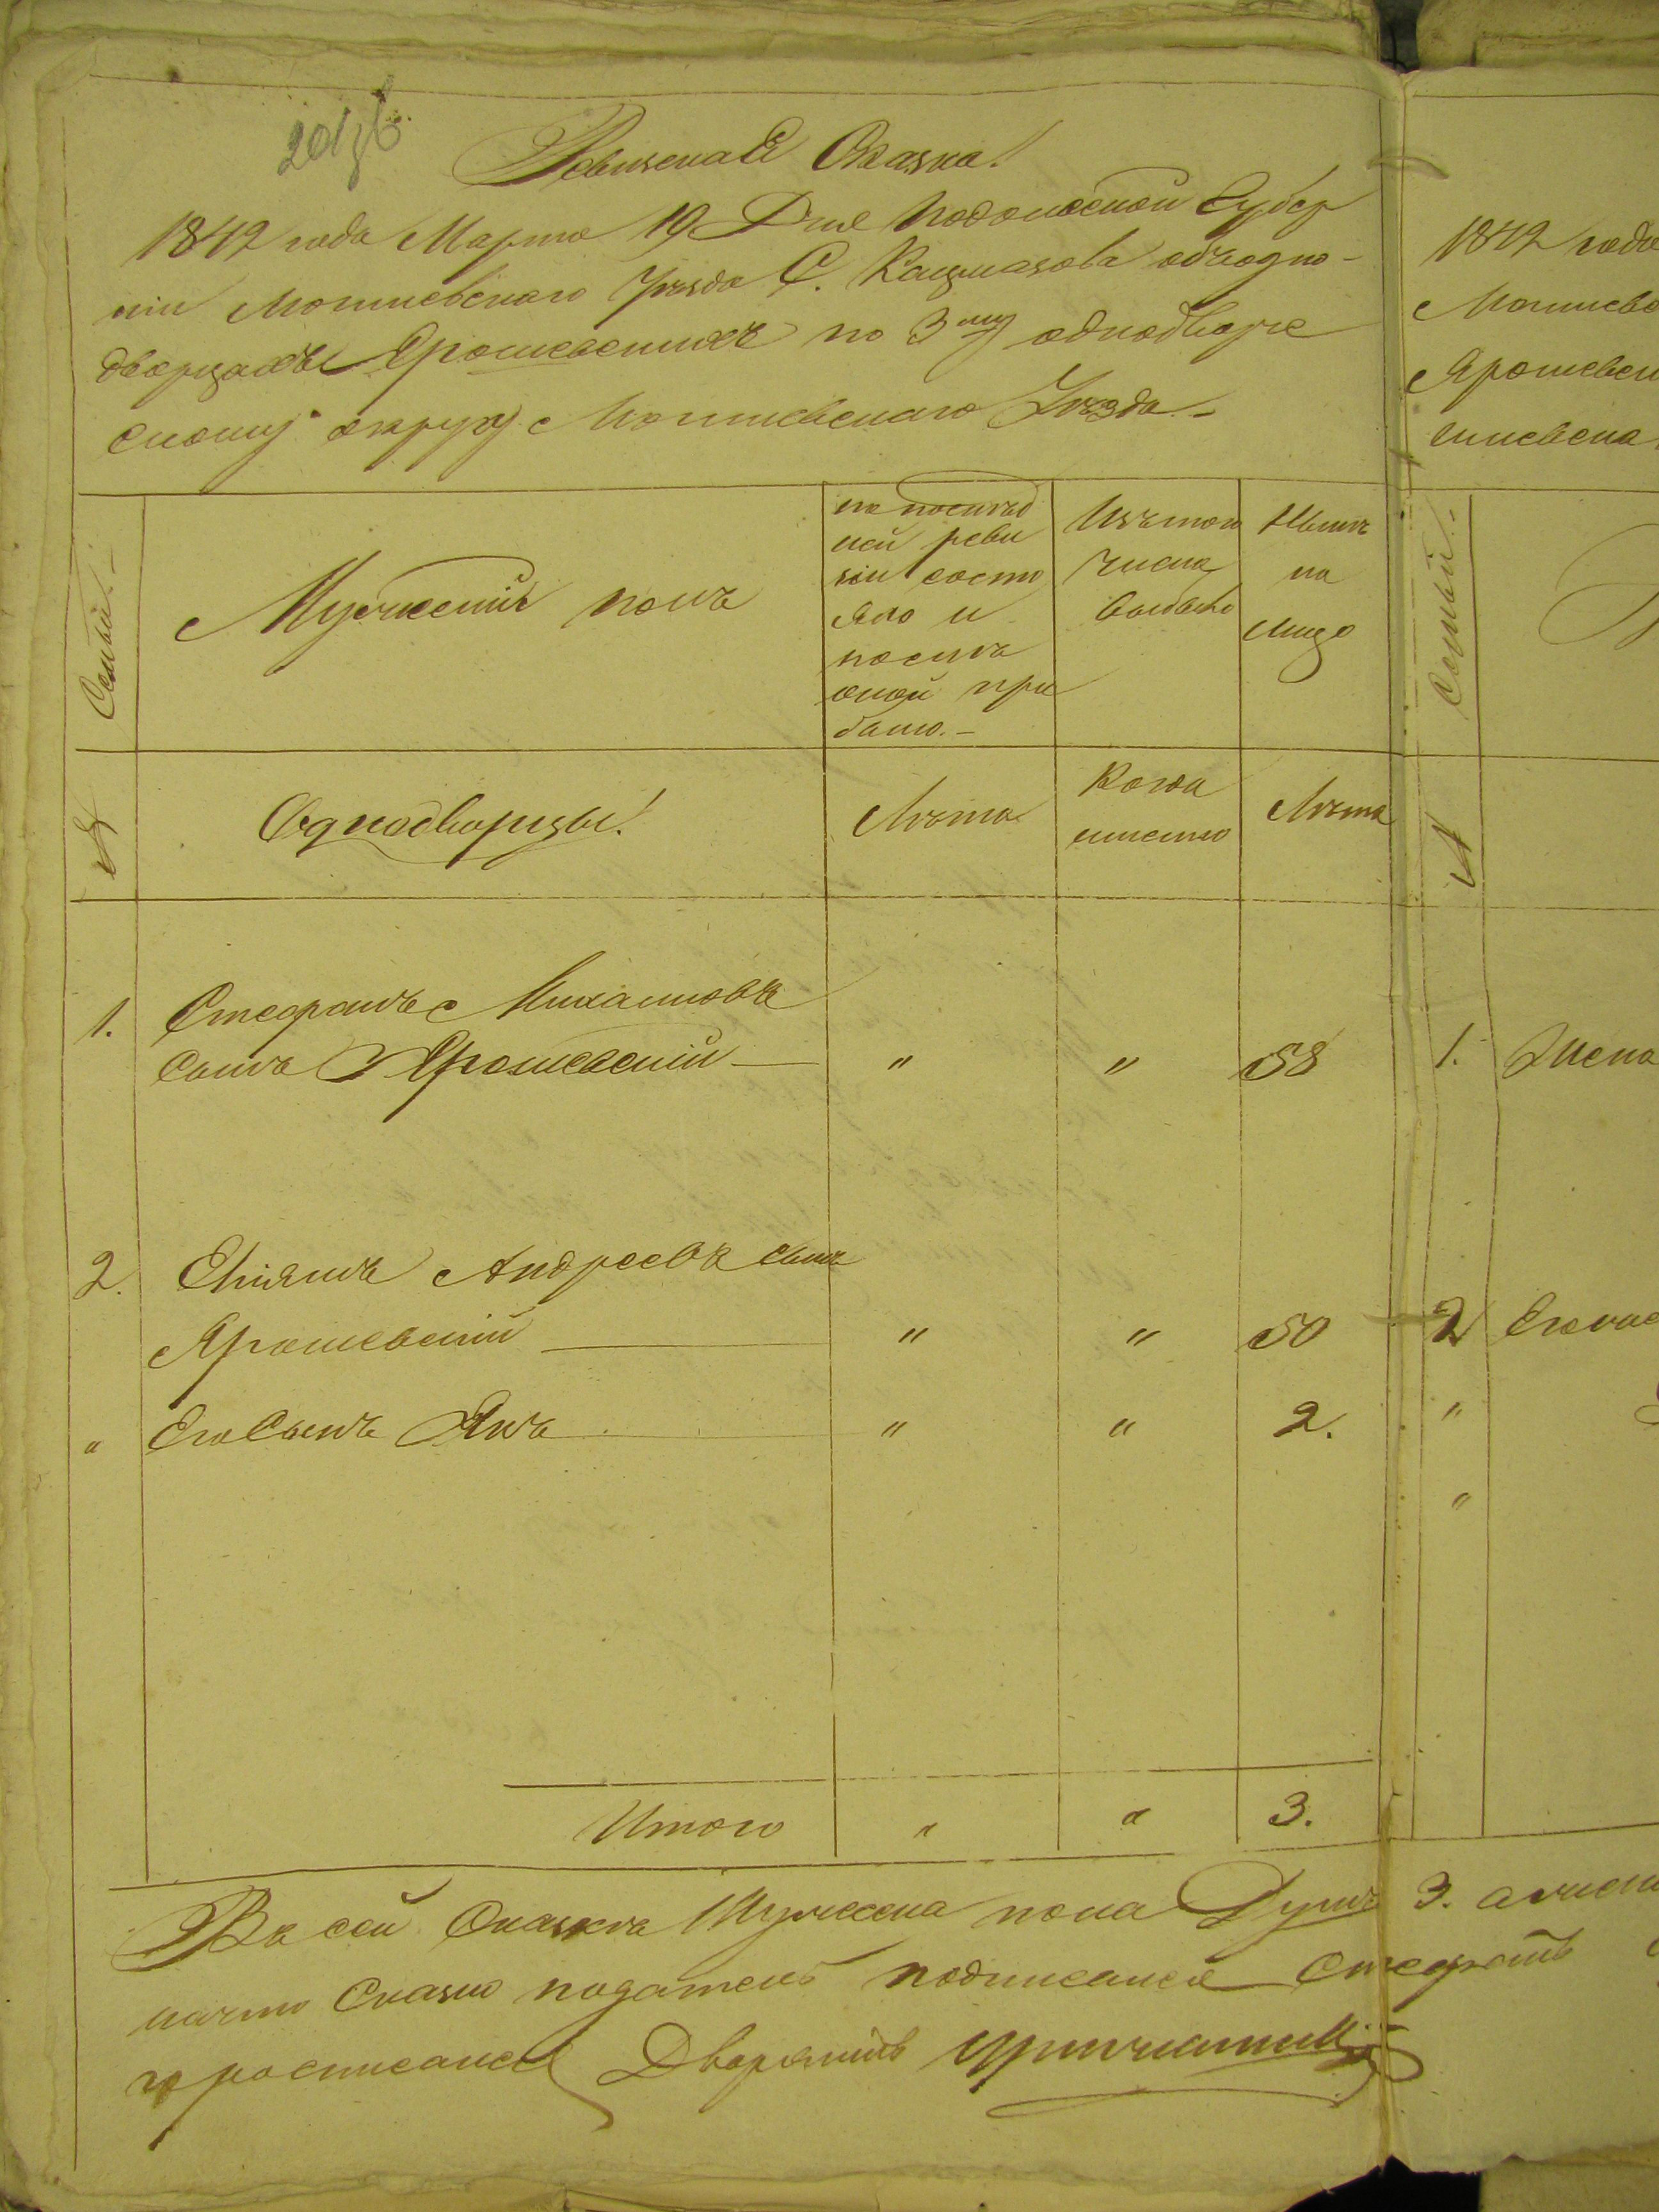 Ревизская Сказка!
1842 года Марта 19 Дня Подольской Губер
ніи Могилевскаго Уѣзда С. Кацмазова объ одно-
дворцахъ Ярошевскихъ по 3му однодворче
скому округу Могилевскаго Уѣзда
Семьи.
Мужескій полъ
по послѣд
ней реви
зіи состо
яло и
послѣ
оной при
было.
Изъ того
числа
выбыло
Нынѣ
на
лицо
№
Однодворцы!
Лѣта
Когда
именно
Лѣта
1. Стефанъ Михайловъ
сынъ Ярошевскій " " 58
2. Андреевъ сынъ
Ярошевскій " " 50
" Его Сынъ Янъ " " 2.
Итого " " 3.
Въ сей Сказкѣ Мужеска пола Душъ 3.
Сказко податель подписался Стефанъ
росписался Дворянинъ
1842 года
Могилевс
Ярошевск
Семьи
№
1. Жена
2 Его
"
"